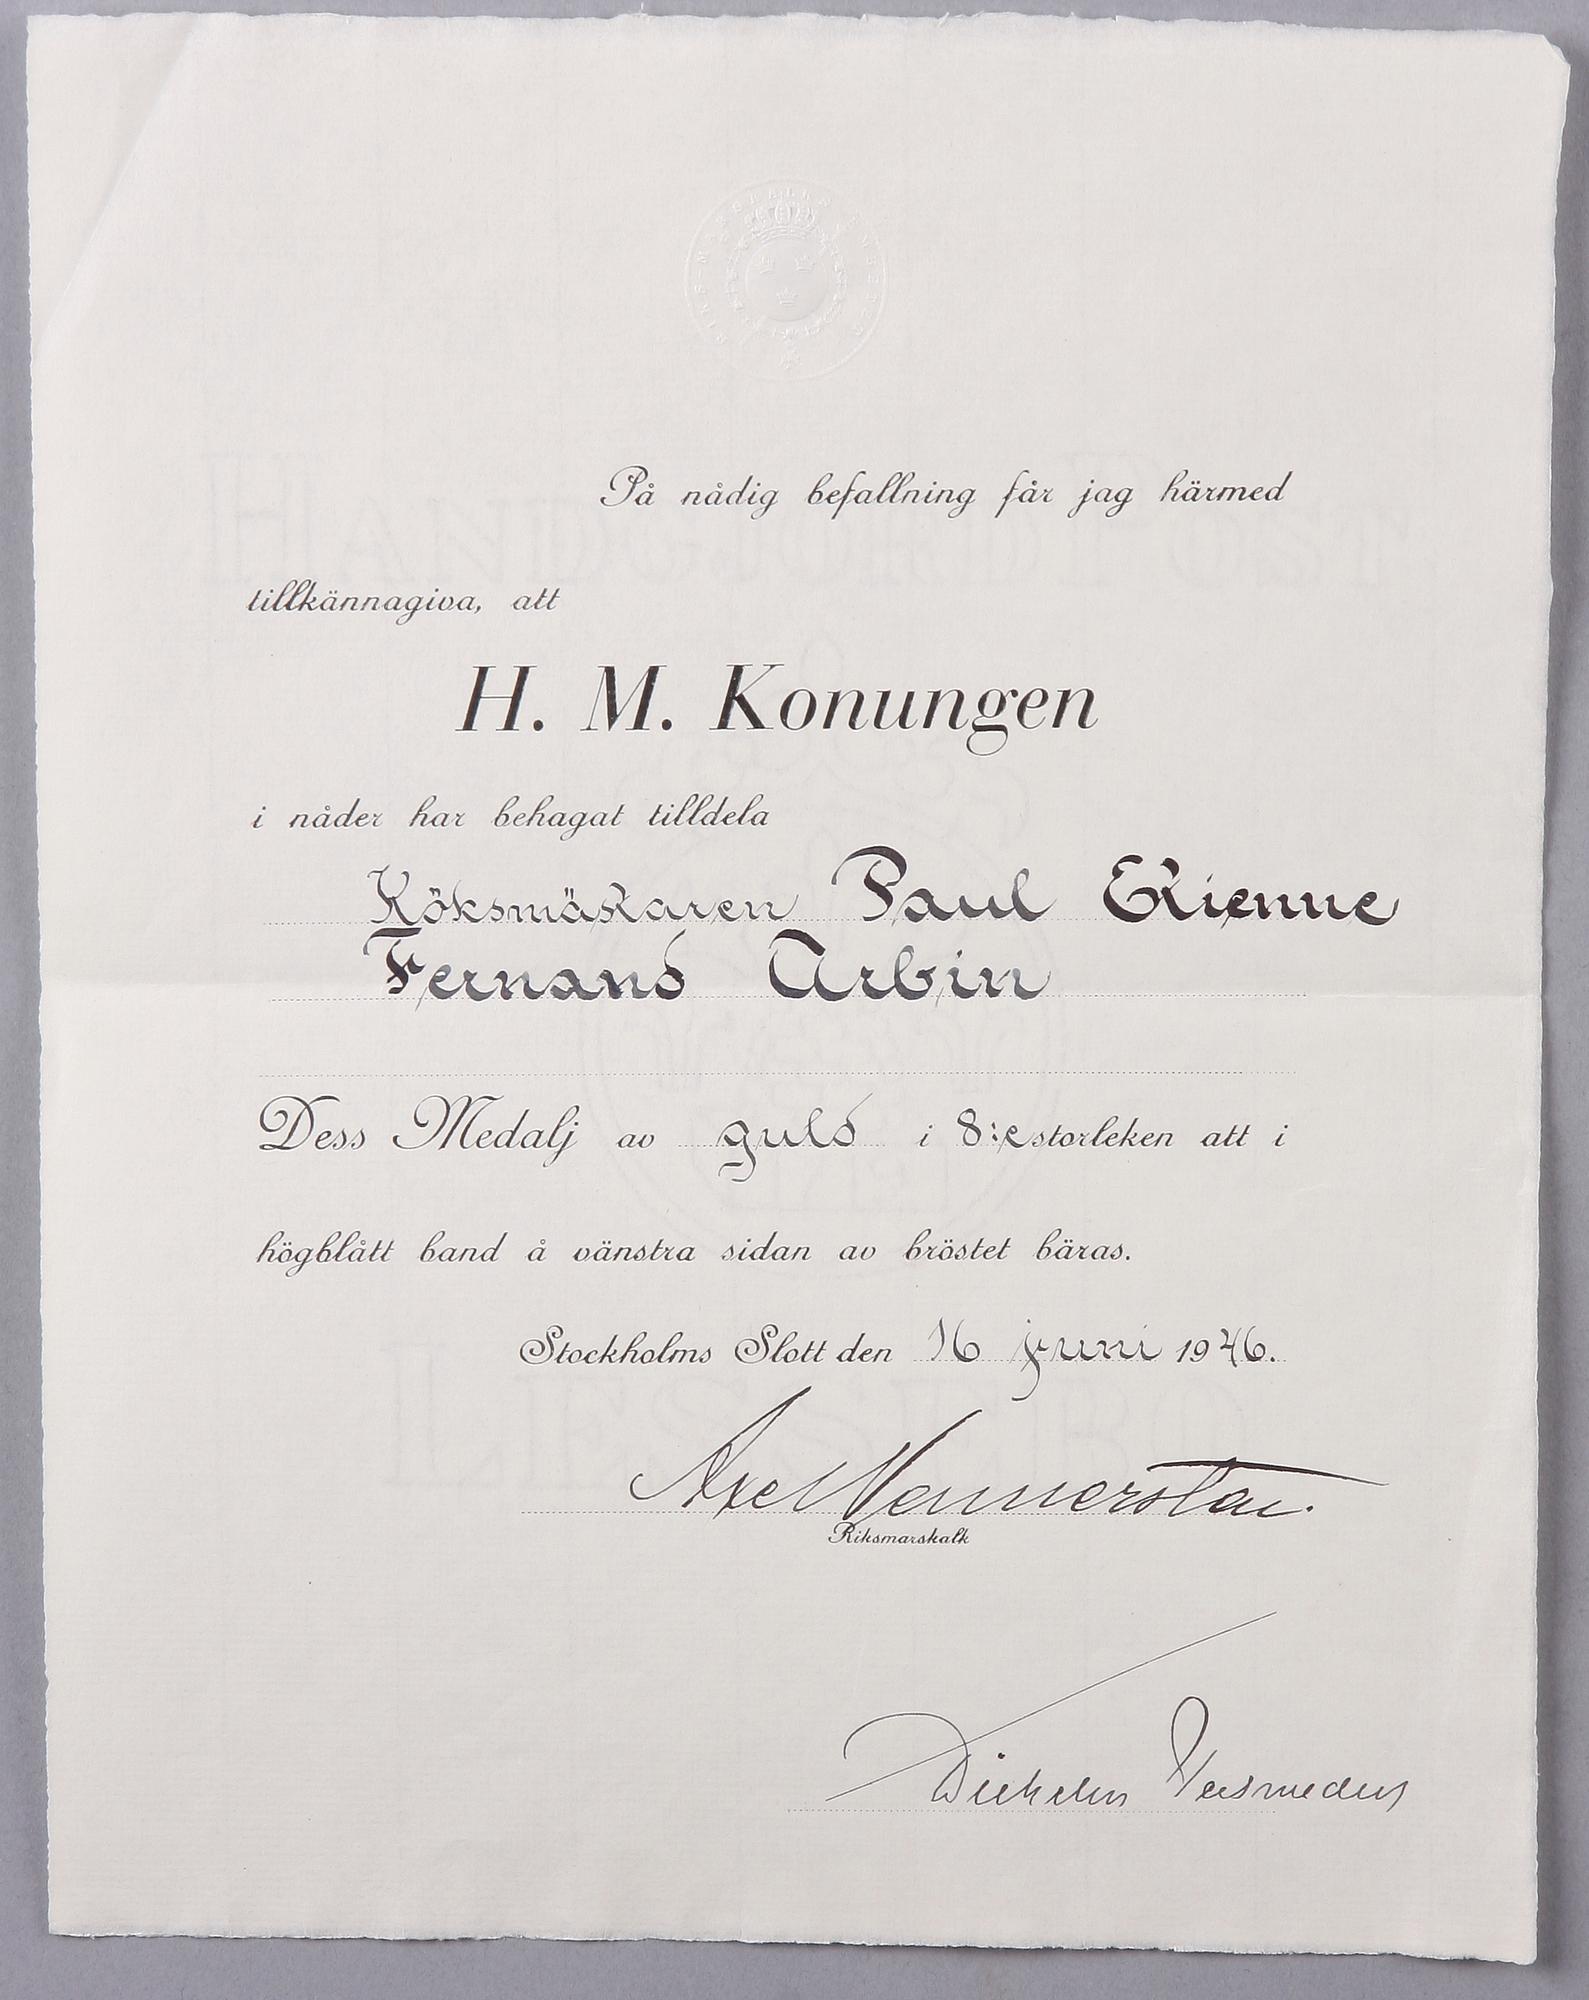 RIKS-MARSKALKS-ÄMBETET
På nådig befallning får jag härmed
tillkännagiva, att
H. M. Konungen
i nåder har behagat tilldela
Köksmästaren Paul Etienne
Fernand Arbin
Dess Medalj av guld i 8:e storleken att i
högblått band å vänstra sidan av bröstet bäras.
Stockholms Slott den 16 juni 1946.
Axel Vennersten.
Riksmarskalk